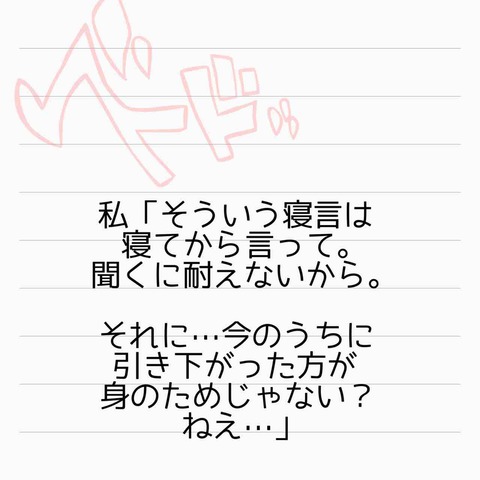 ズドド
私「そういう寝言は
寝てから言って。
聞くに耐えないから。
それに…今のうちに
引き下がった方が
身のためじゃない？
ねえ…」